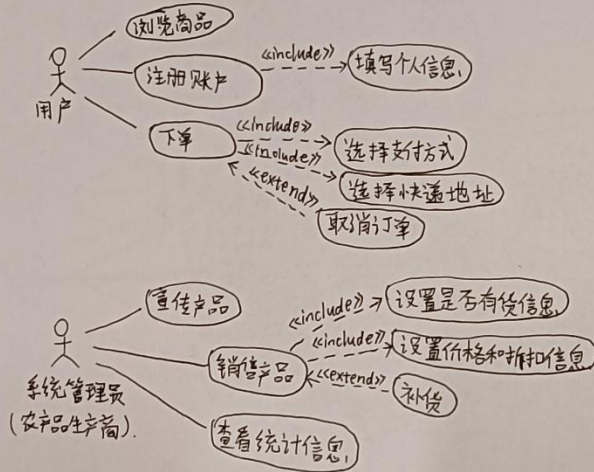 浏览商品
注册账户
<<include>>
填写个人信息
用户
下单
<<include>>
选择支付方式
<<include>>
选择快递地址
<<extend>>
取消订单
宣传产品
<<include>>
设置是否有货信息
<<include>>
设置价格和折扣信息
销售产品
<<extend>>
补货
系统管理员
(农产品生产商).
查看统计信息